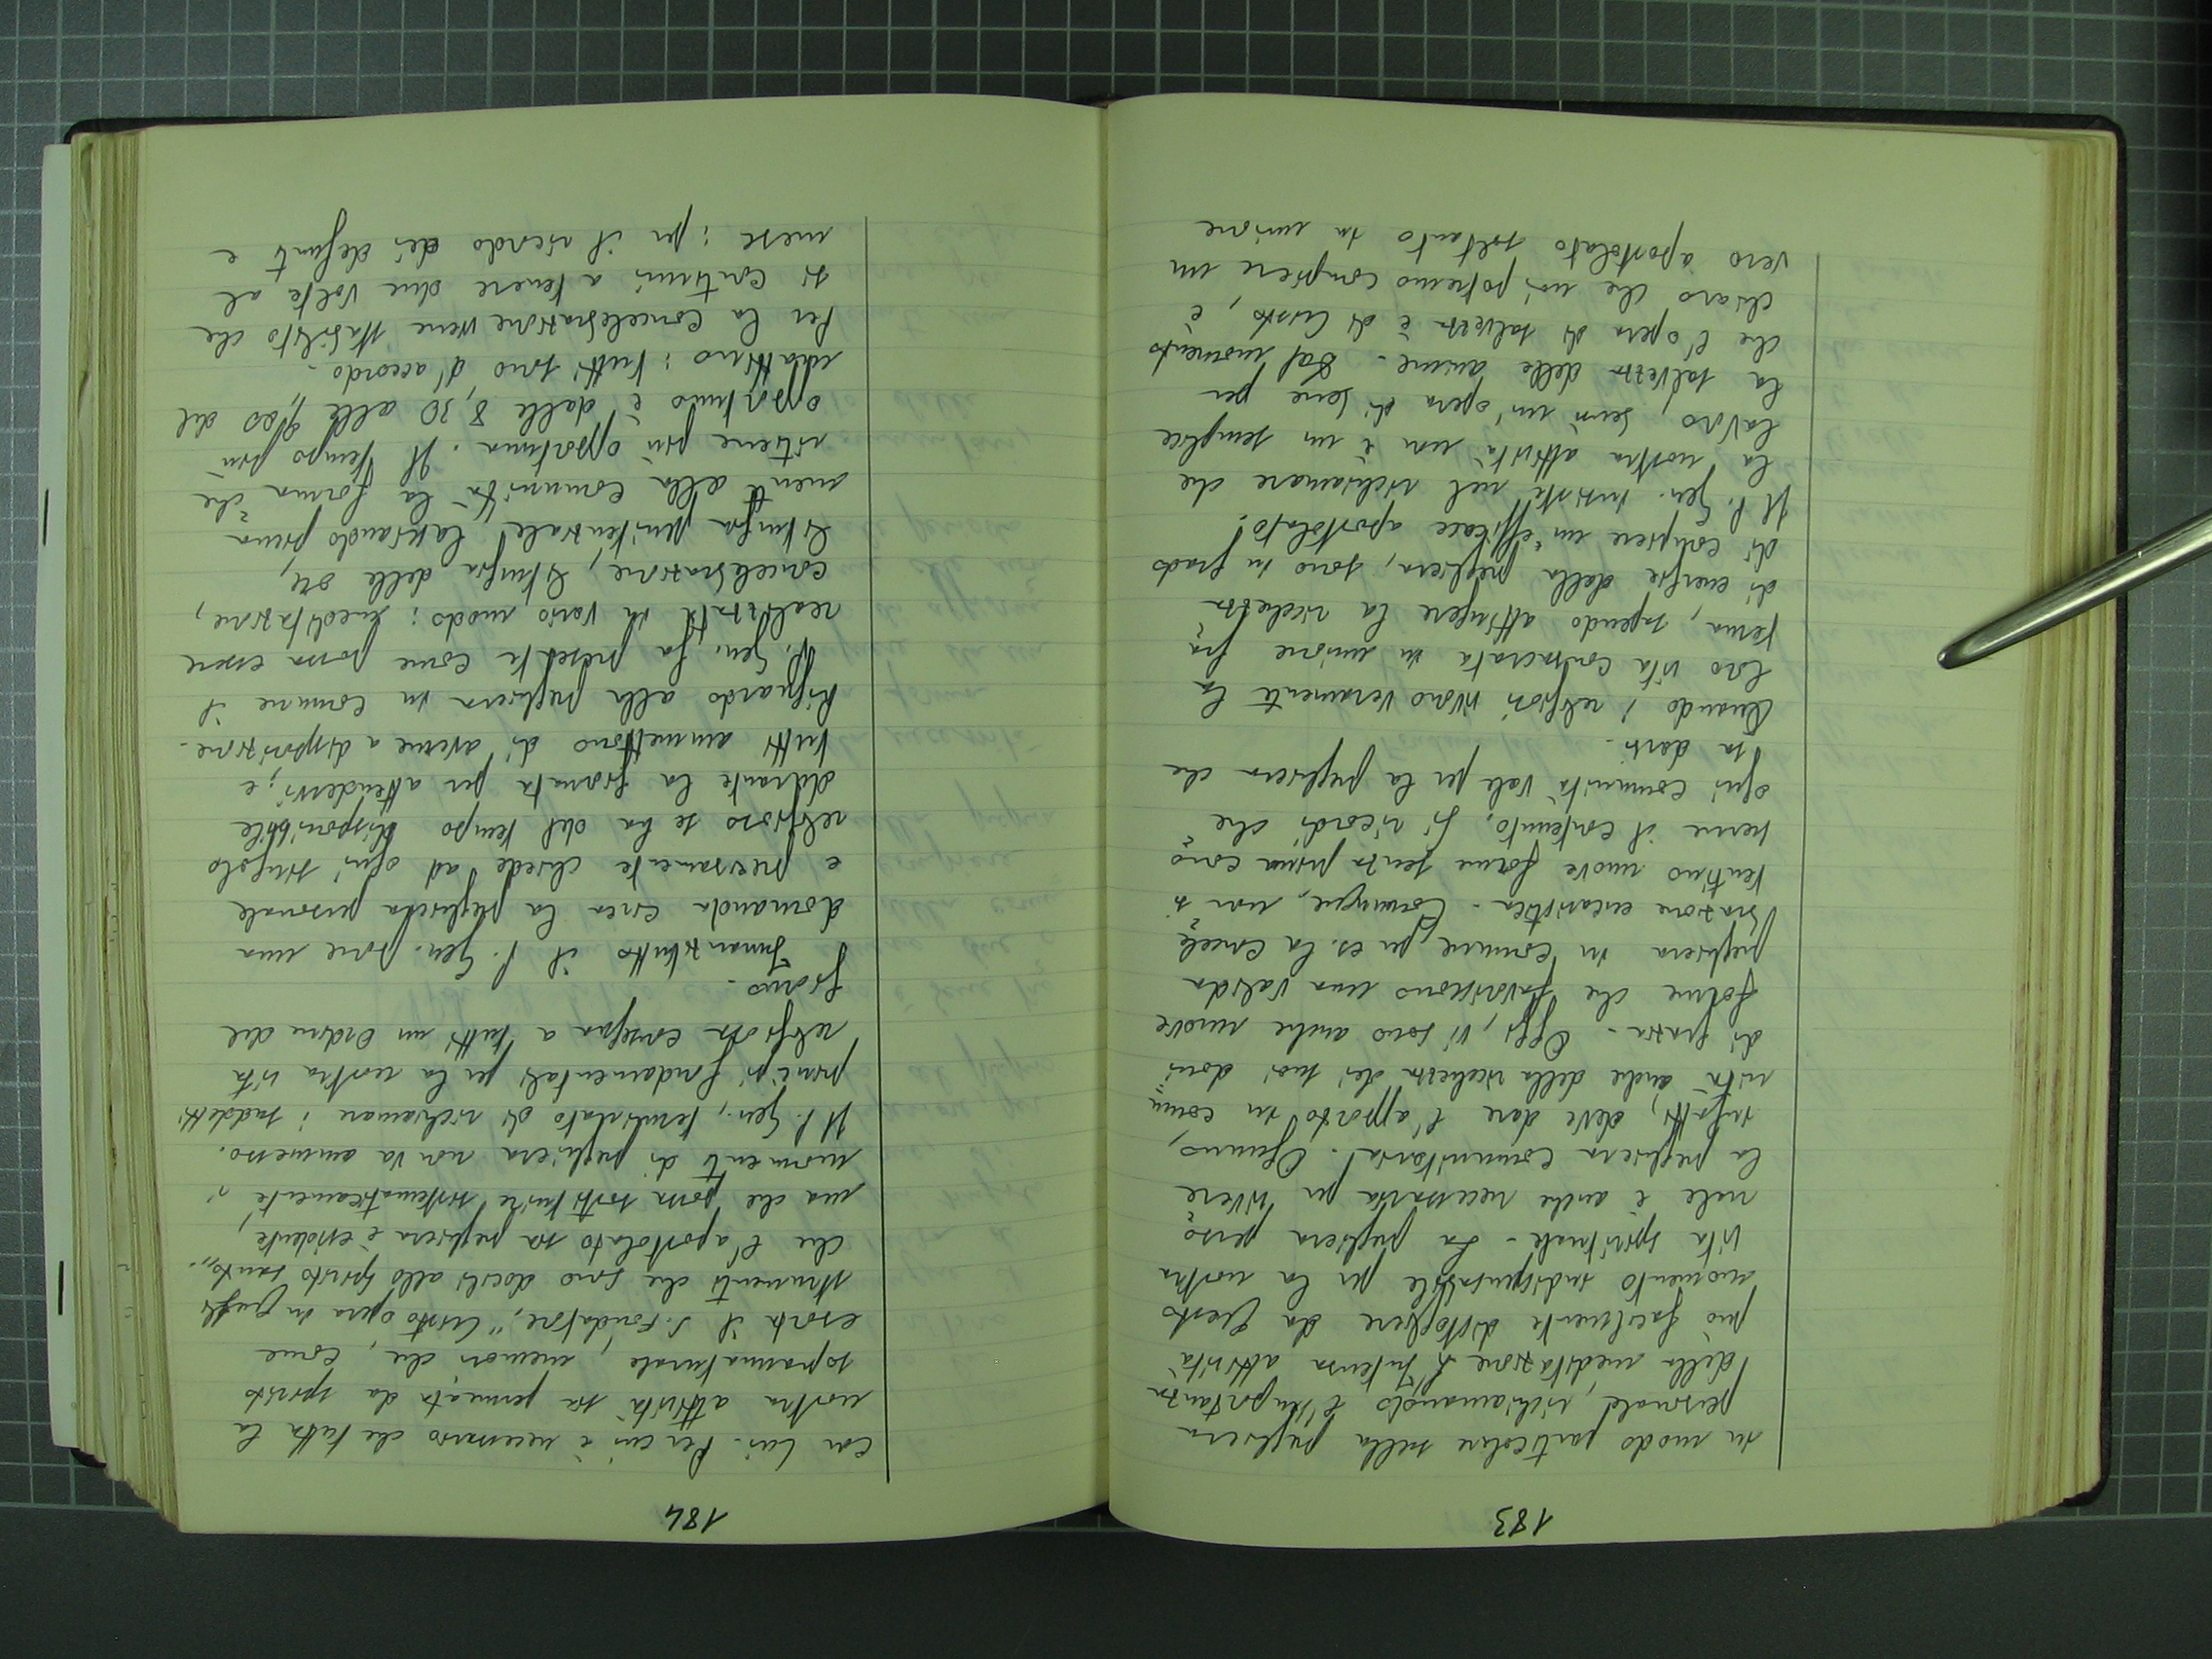 183
in modo particolare sulla preghiera
personale, richiamando l'importanza
della meditazione. L'intensa attività
può facilmente distogliere da questo
momento indispensabile per la nostra
vita spirituale. La preghiera perso=
nale è anche necessaria per vivere
la preghiera comunitaria. Ognuno,
infatti, deve dare l'apporto in comu=
nità anche della ricchezza dei suoi doni
di grazia. Oggi, vi sono anche nuove
forme che favoriscono una valida
preghiera in comune, per es. la concele=
brazione eucaristica. Comunque, non si
tentino nuove forme senza prima cono=
scerne il contenuto. Si ricordi che
ogni comunità vale per la preghiera che
sa darsi.
Quando i religiosi vivono veramente la
loro vita consacrata in unione fra=
terna, sapendo attingere la ricchezza
di energie dalla preghiera, sono in grado
di compiere un'efficace apostolato!
Il P. Gen. insiste nel richiamare che
la nostra attività non è un semplice
lavoro, bensì un'opera di bene per
la salvezza delle anime. Dal momento
che l'opera di salvezza è di Cristo, è
chiaro che noi potremo compiere un
vero apostolato soltanto in unione
184
con Lui. Per cui è necessario che tutta la
nostra attività sia permeata da spirito
soprannaturale, memori che, come
esorta il S. Fondatore, "Cristo opera in quegli
strumenti che sono docili allo Spirito Santo".
Che l'apostolato sia preghiera è evidente,
ma che possa sostituire sistematicamente i
momenti di preghiera non va ammesso.
Il P. Gen., terminato di richiamare i suddetti
principi fondamentali per la nostra vita
religiosa consegna a tutti un Ordine del
giorno.
Innanzitutto il P. Gen. pone una
domanda circa la preghiera personale
e precisamente chiede ad ogni singolo
religioso se ha del tempo disponibile
durante la giornata per attendervi; e
tutti ammettono di averne a disposizione.
Riguardo alla preghiera in comune il
P. Gen. fa presente come possa essere
realizzata in vario modo: meditazione,
concelebrazione, liturgia delle ore,
liturgia penitenziale, lasciando piena=
mente alla comunità la forma che
ritiene più opportuna. Il tempo più
opportuno è dalle 8,30 alle 9,00 del
mattino: tutti sono d'accordo.
Per la concelebrazione viene stabilito che
si continui a tenere due volte al
mese: per il ricordo dei defunti e